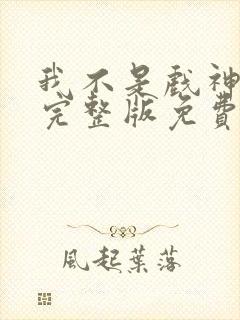 我不是戲神
完整版免費
風起葉落